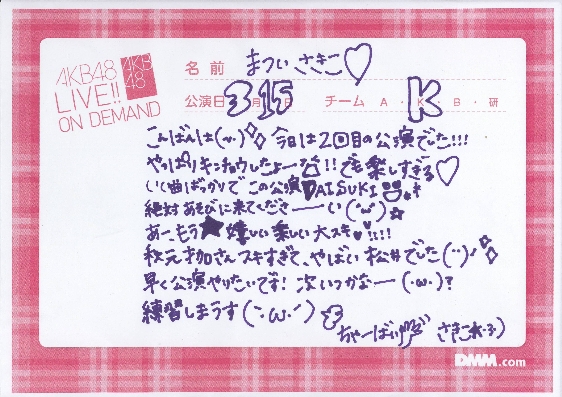 AKB48
LIVE!!
ON DEMAND
AKB
48
名前 まつい さきこ♡
公演日 3月15日 チーム A・K・B・研
こんばんは(・・)今日は2回目の公演でした!!!
やっぱりキンチョウしたよー!!でも楽しすぎる♡
いい曲ばっかりで この公演DAISUKI
絶対あそびに来てくださーーい(・ω・)☆
あー、もう★嬉しい楽しい大スキ!!!!
秋元才加さんスキすぎて、やばい 松井でした(・・)
早く公演やりたいです!次いつかなー(・ω・)?
練習しまうす(・ω・)
ちゃーばい さきこ
DMM.com